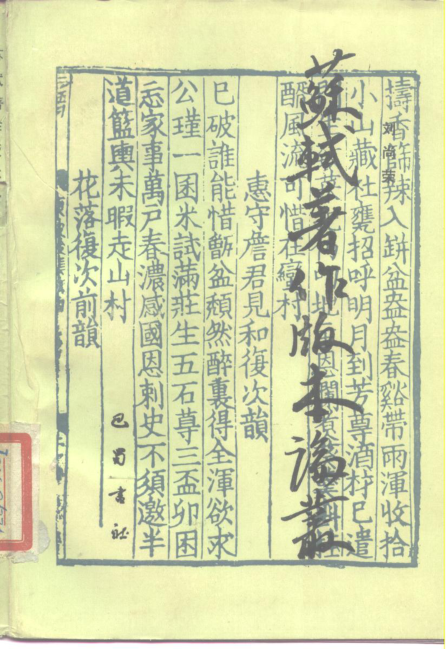 刘尚荣
蘇軾著作版本論叢
擣香篩辣入缾盆盎盎春谿帶雨渾收拾
小山藏社甕招呼明月到芳尊酒材已遣
醅風流可惜在蠻村
惠守詹君見和復次韻
已破誰能惜甑盆頽然醉裏得全渾欲求
公瑾一囷米試滿莊生五石尊三盃卯困
忘家事萬戸春濃感國恩刺史不須邀半
道籃輿未暇走山村
花落復次前韻
巴蜀書社